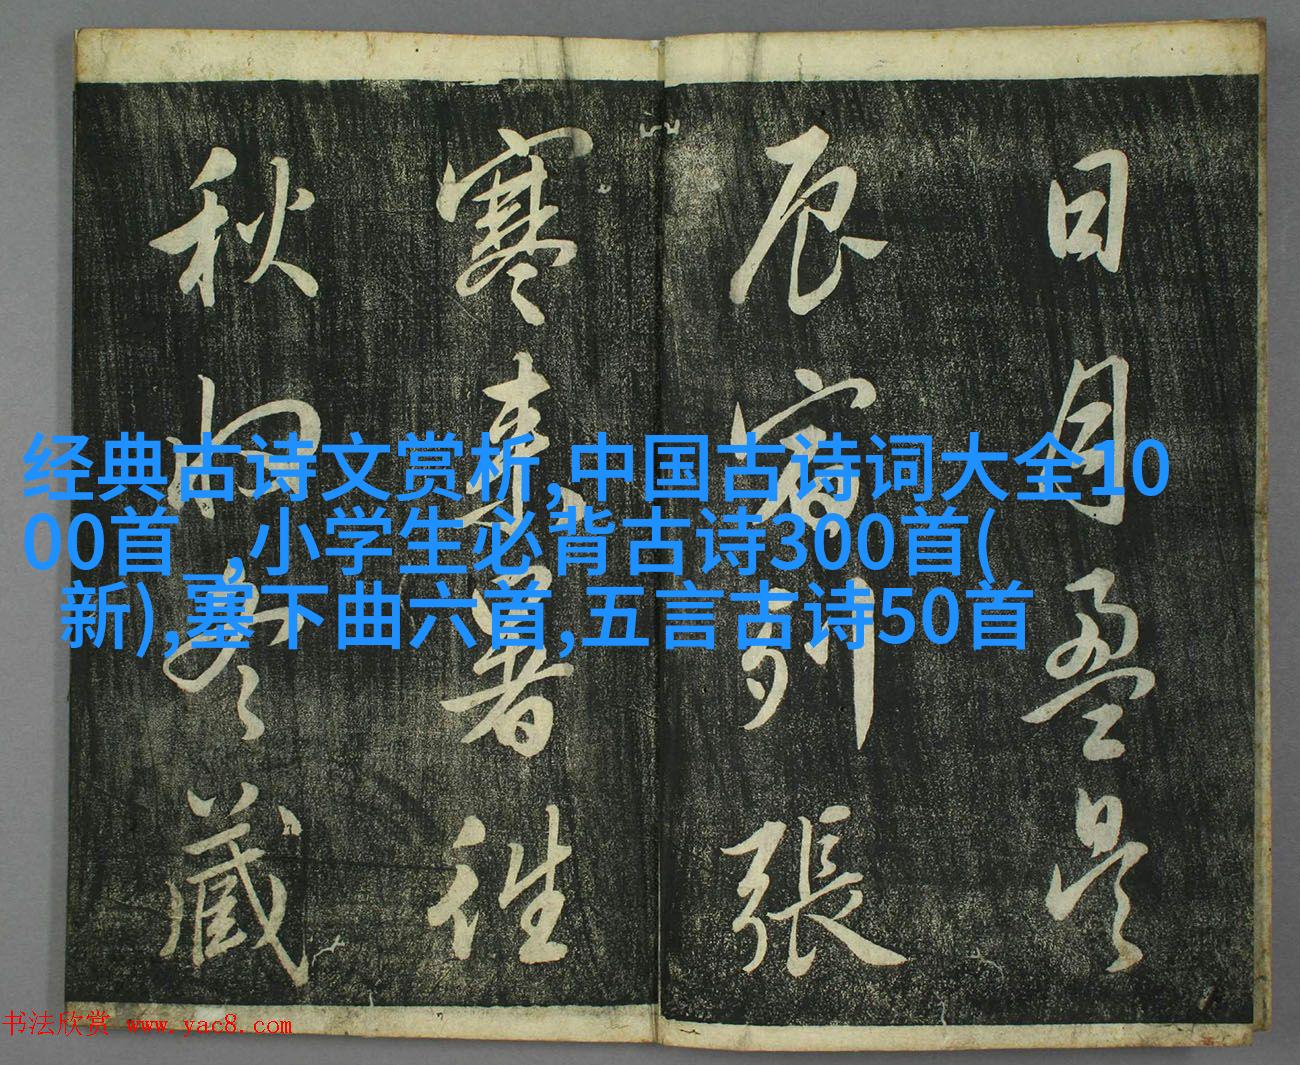 日月盈昃
辰宿列張
寒來暑往
秋收冬藏
经典古诗文赏析,中国古诗词大全10
00首_,小学生必背古诗300首(
新),塞下曲六首,五言古诗50首
书法欣赏 www.yac8.com